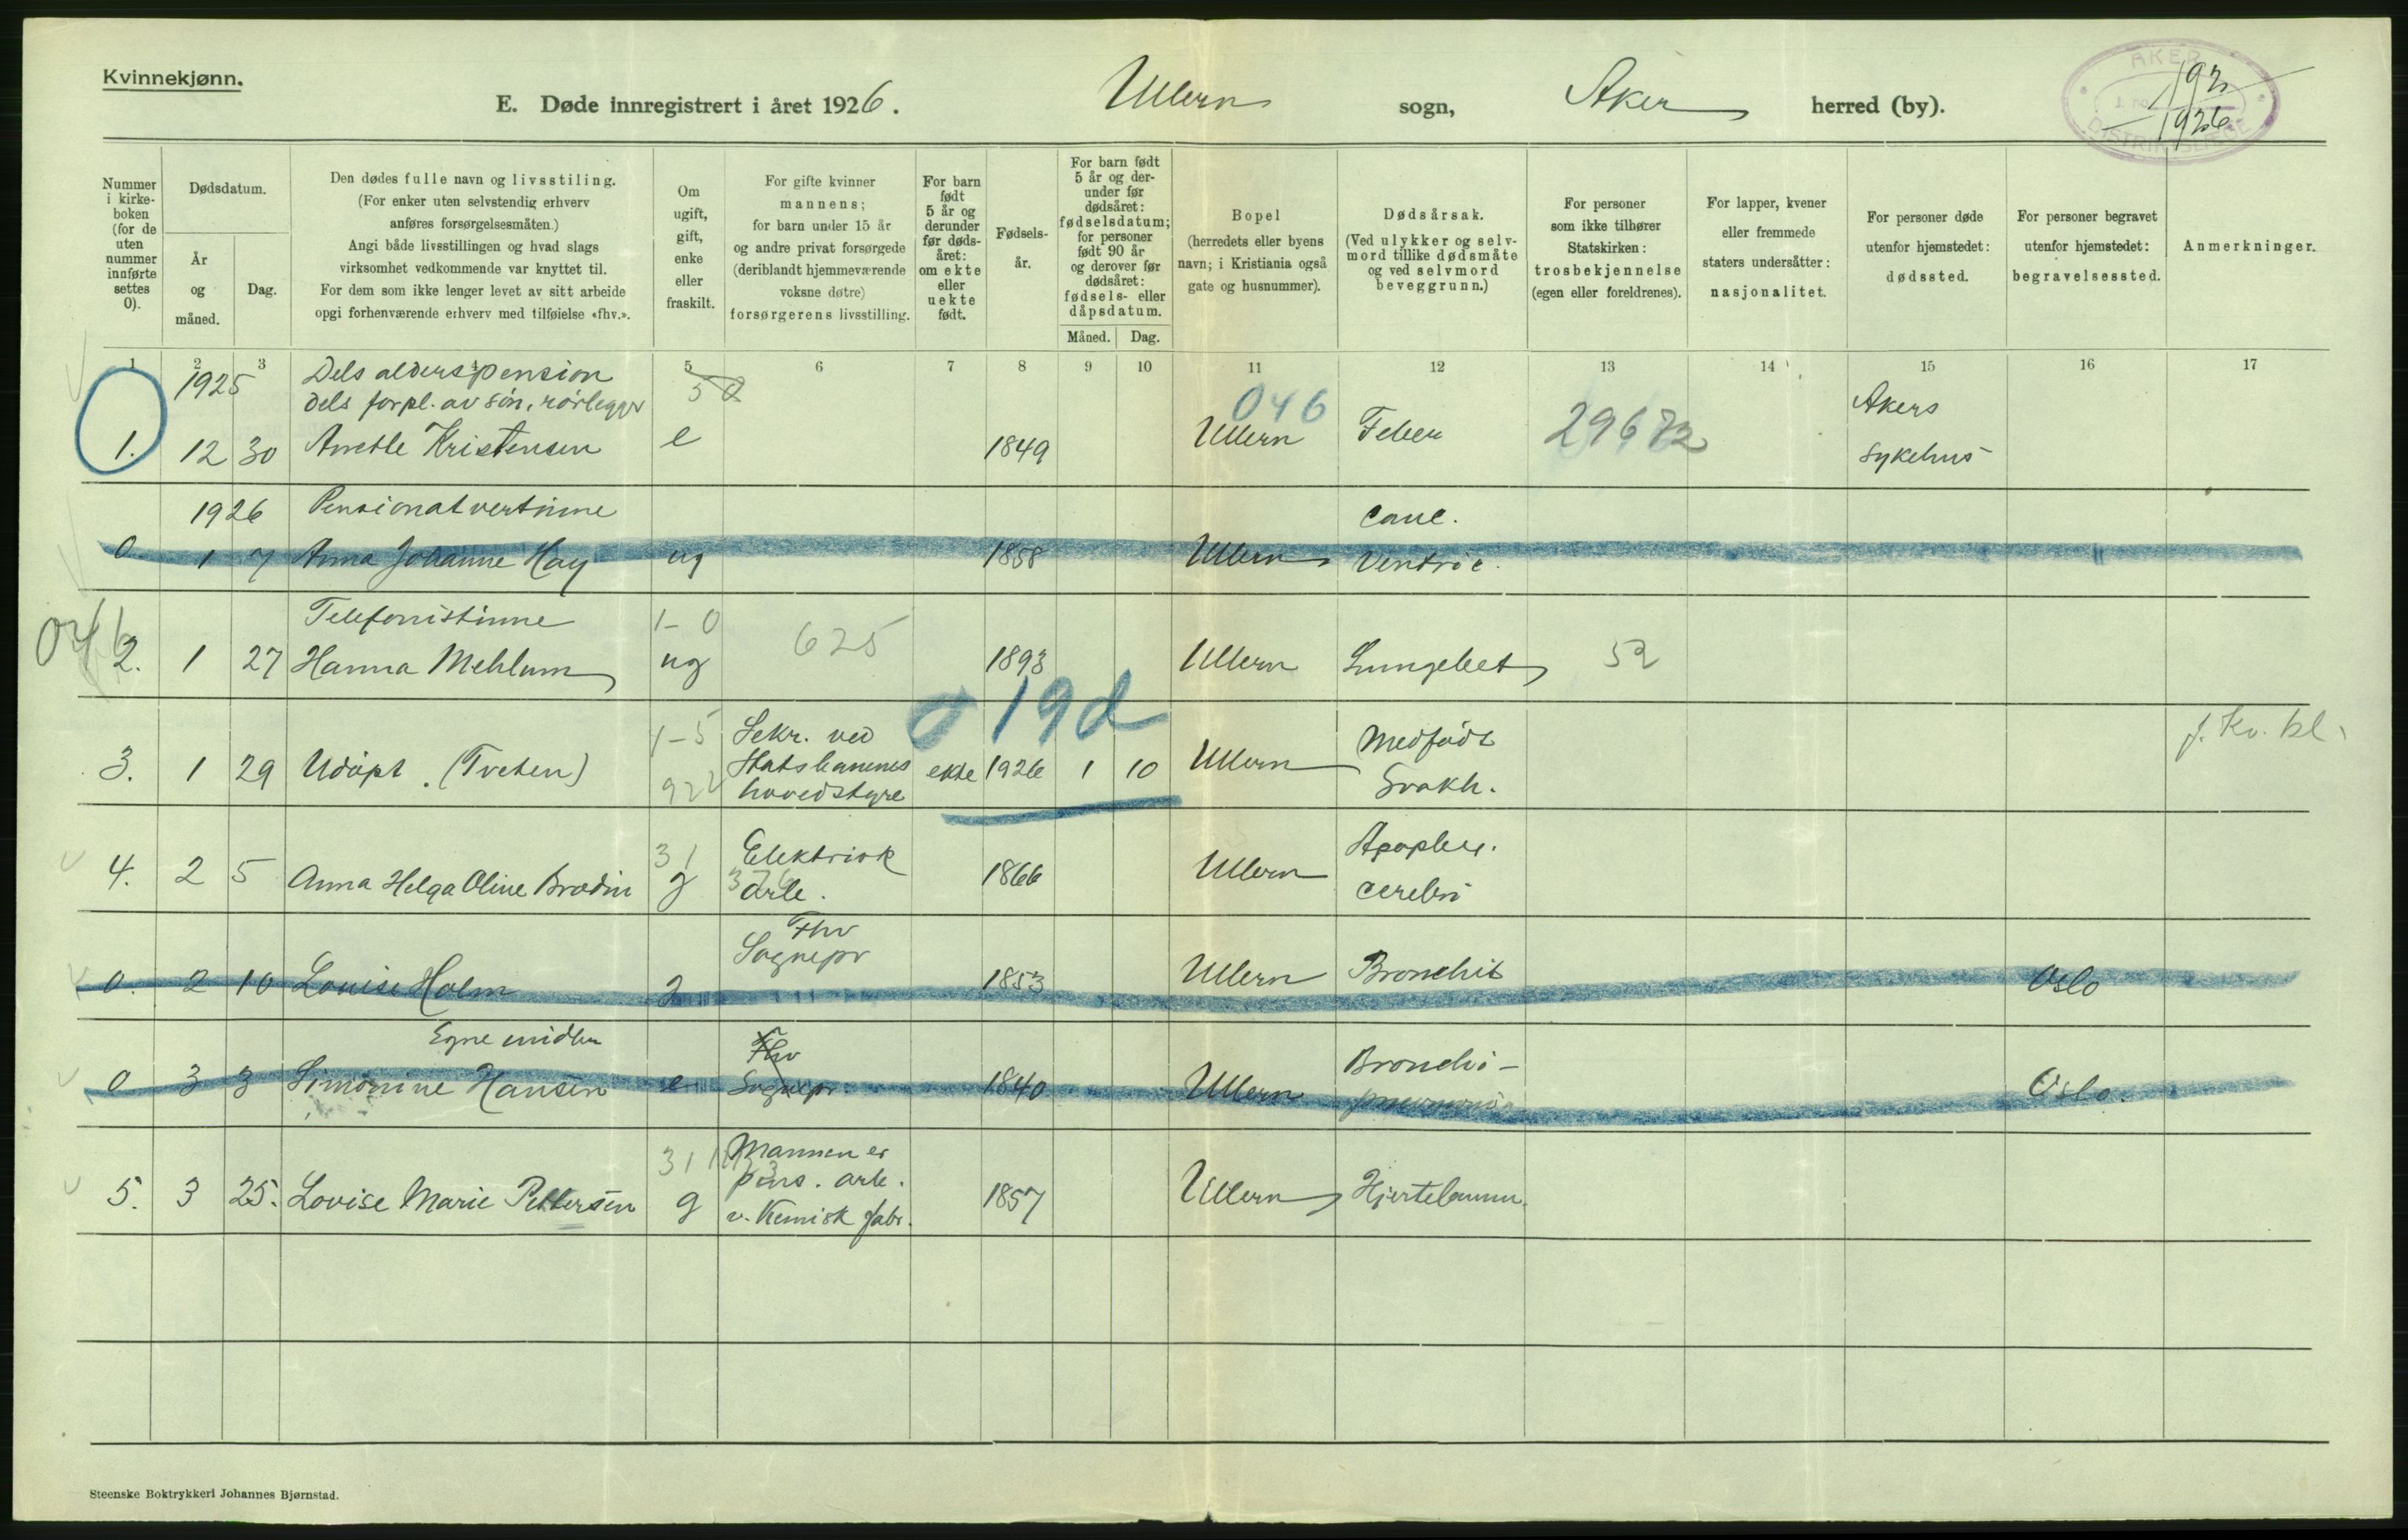 Kvinnekjønn.
E. Døde innregistrert i året 1926. Ullern sogn, Aker herred (by).
AKER
192
1926
Nummer i kirke-boken (for de uten nummer innførte settes 0).
Dødsdatum.
År og måned.
Dag.
Den dødes fulle navn og livsstiling.
(For enker uten selvstendig erhverv
anføres forsørgelsesmåten.)
Angi både livsstillingen og hvad slags
virksomhet vedkommende var knyttet til.
For dem som ikke lenger levet av sitt arbeide
opgi forhenværende erhverv med tilføielse «fhv.».
Om
ugift,
gift,
enke
eller
fraskilt.
For gifte kvinner
mannens;
for barn under 15 år
og andre privat forsørgede
(deriblandt hjemmeværende
voksne døtre)
forsørgerens livsstilling.
For barn
født
5 år og
derunder
før døds-
året:
om ekte
eller
uekte
født.
Fødsels-
år.
For barn født
5 år og der-
under før
dødsåret:
fødselsdatum;
for personer
født 90 år
og derover før
dødsåret:
fødsels- eller
dåpsdatum.
Måned. Dag.
Bopel
(herredets eller byens
navn; i Kristiania også
gate og husnummer).
Dødsårsak.
(Ved ulykker og selv-
mord tillike dødsmåte
og ved selvmord
beveggrunn.)
For personer
som ikke tilhører
Statskirken:
trosbekjennelse
(egen eller foreldrenes).
For lapper, kvener
eller fremmede
staters undersåtter:
nasjonalitet.
For personer døde
utenfor hjemstedet:
dødssted.
For personer begravet
utenfor hjemstedet:
begravelsessted.
Anmerkninger.
1 2 3 5 6 7 8 9 10 11 12 13 14 15 16 17
1925 Dels alderspension 046 Akers
dels forpl. av søn, rørlegger
1. 12 30 Anette Kristensen e 1849 Ullern Feber 29672 Sykehus
1926 Pensionatvertinne Canc.
0. 1 7 Anna Johanne Hay ug 1858 Ullern Ventric.
046 Telefonistinne 1-0 625
2. 1 27 Hanna Mehlum ug 1893 Ullern Lungebet 52
19d
1-5 Sekr. ved Medfødt f. Kv. bl.
3. 1 29 Udøpt. (Tveten) Statsbanenes ekte 1926 1 10 Ullern
922 hovedstyre Svakh.
31 Elektrisk Apoplex.
4. 2 5 Anna Helga Oline Brodin g arb. 1866 Ullern cerebri
Fhv
Sognepr
0. 2 10 Louise Holm g 1853 Ullern Bronchit Oslo
Egne midler Fhv Broncho-
0 3 3 Simonine Hansen e Sognepr. 1840 Ullern pneumoni Oslo.
311 Mannen er
pens. arb.
5. 3 25. Lovise Marie Pettersen g v. Kemisk fabr. 1857 Ullern Hjertelamm.
Steenske Boktrykkeri Johannes Bjørnstad.